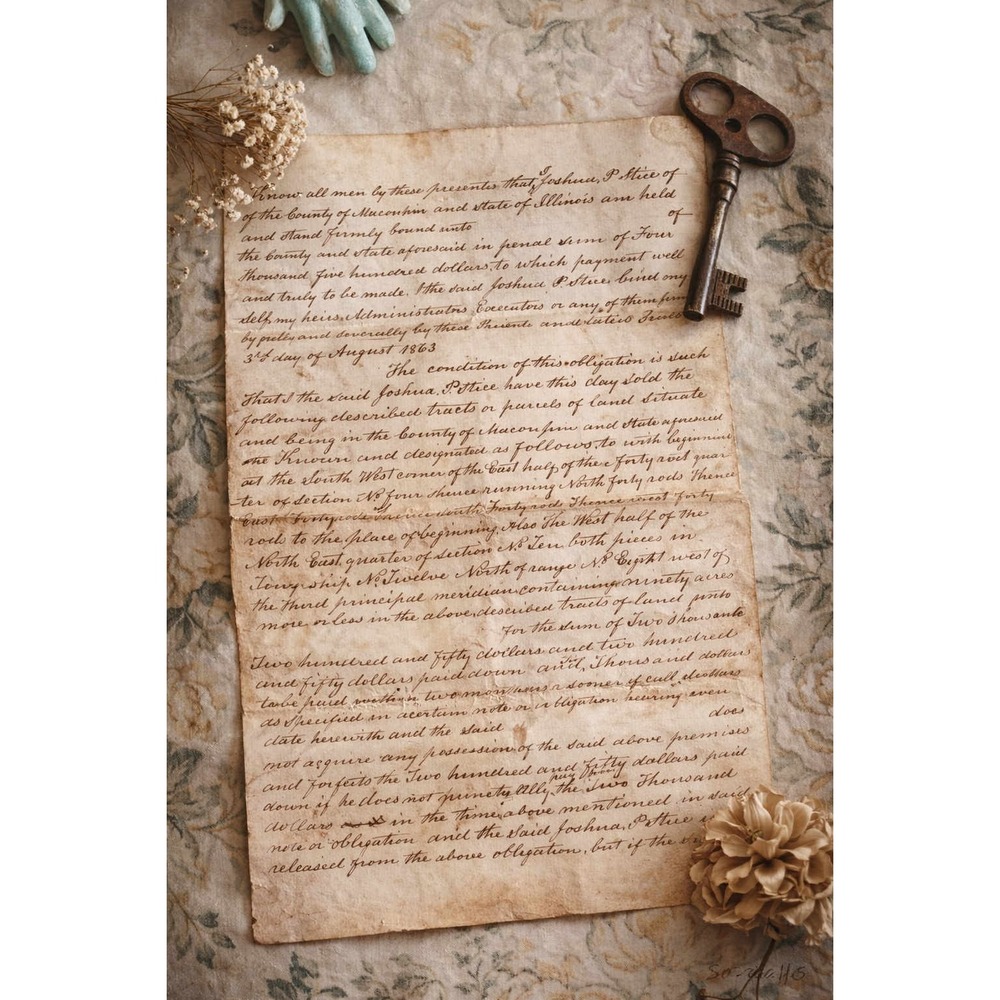 Know all men by these presents that, I Joshua, P Stice of
of the County of Macoupin and State of Illinois am held
and Stand firmly bound unto of
the County and State aforesaid in penal Sum of Four
Thousand five hundred dollars, to which payment well
and truly to be made. I the said Joshua P. Stice, bind my
self, my heirs, Administrators Executors or any of them firm
by and severally by these Presents and
3rd day of August 1863
The condition of this obligation is such
That I the said Joshua, P. Stice have this day sold the
following described tracts or parcels of land situate
and being in the County of Macoupin and State aforesaid
Known and designated as follows, to with beginning
at the South West corner of the East half of the forty rod quar
ter of Section No four thence running North forty rods Thence
East Forty rods thence south Forty rods Thence west forty
rods to the place of beginning Also The West half of the
North East, quarter of Section No Ten both pieces in
Town ship No Twelve North of range No Eight west of
the third principal meridian, containing ninety acres
more or less in the above, described tracts of land unto
for the sum of Two Thousand
Two hundred and Fifty dollars and two hundred
and fifty dollars paid down and, Thousand dollars
to be paid within two months sooner if call dollars
as Specified in acertain note or obligation bearing even
date herewith and the said does
not acquire any possession of the said above premises
and forfeits the Two hundred and fifty dollars paid
down if he does not the Two Thousand
dollars in the time, above mentioned in said
note or obligation and the said Joshua, P. Stice
released from the above obligation, but if the